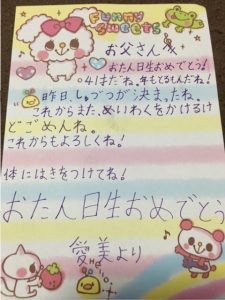 Funny Sweets
お父さんへ
おたん日生おめでとう!
41はだね。年もとるもんだね!
昨日、しゅづつが決まったね。
これからまた、めいわくをかけるけ
どごめんね。
これからもよろしくね!
体にはきをつけてね!
おたん日生おめでとう
愛美より